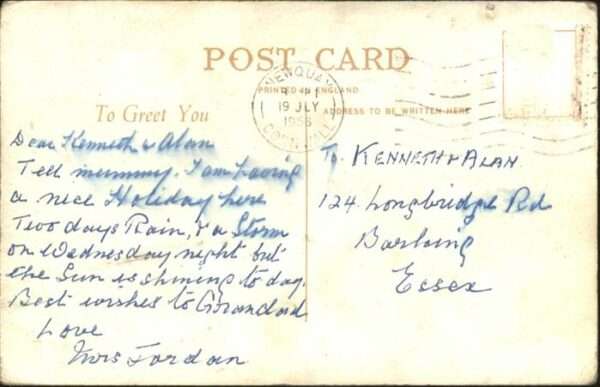 POST CARD
NEWQUAY
19 JLY
1956
CORNWALL
PRINTED IN ENGLAND
To Greet You
ADDRESS TO BE WRITTEN HERE
Dear Kenneth & Alan
Tell mummy. I am having
a nice Holiday here
Two days Rain, & a Storm
on Wednesday night but
the Sun is shining to day.
Best wishes to Grandad
Love
Mrs Jordan
To KENNETH & ALAN
124 Longbridge Rd
Barking
Essex